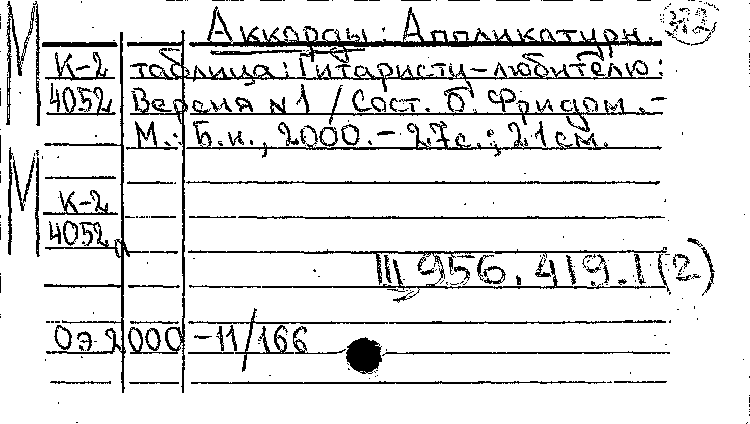 М Аккорды: Аппликатурн. 272
К-2 таблица: Гитаристу-любителю:
4052 Версия N1 / Сост. Б. Фридом. -
М.: Б.и., 2000. - 27с.; 21см.
М
К-2
4052а
III 956.419.1(2)
Оэ 2000 -11/166